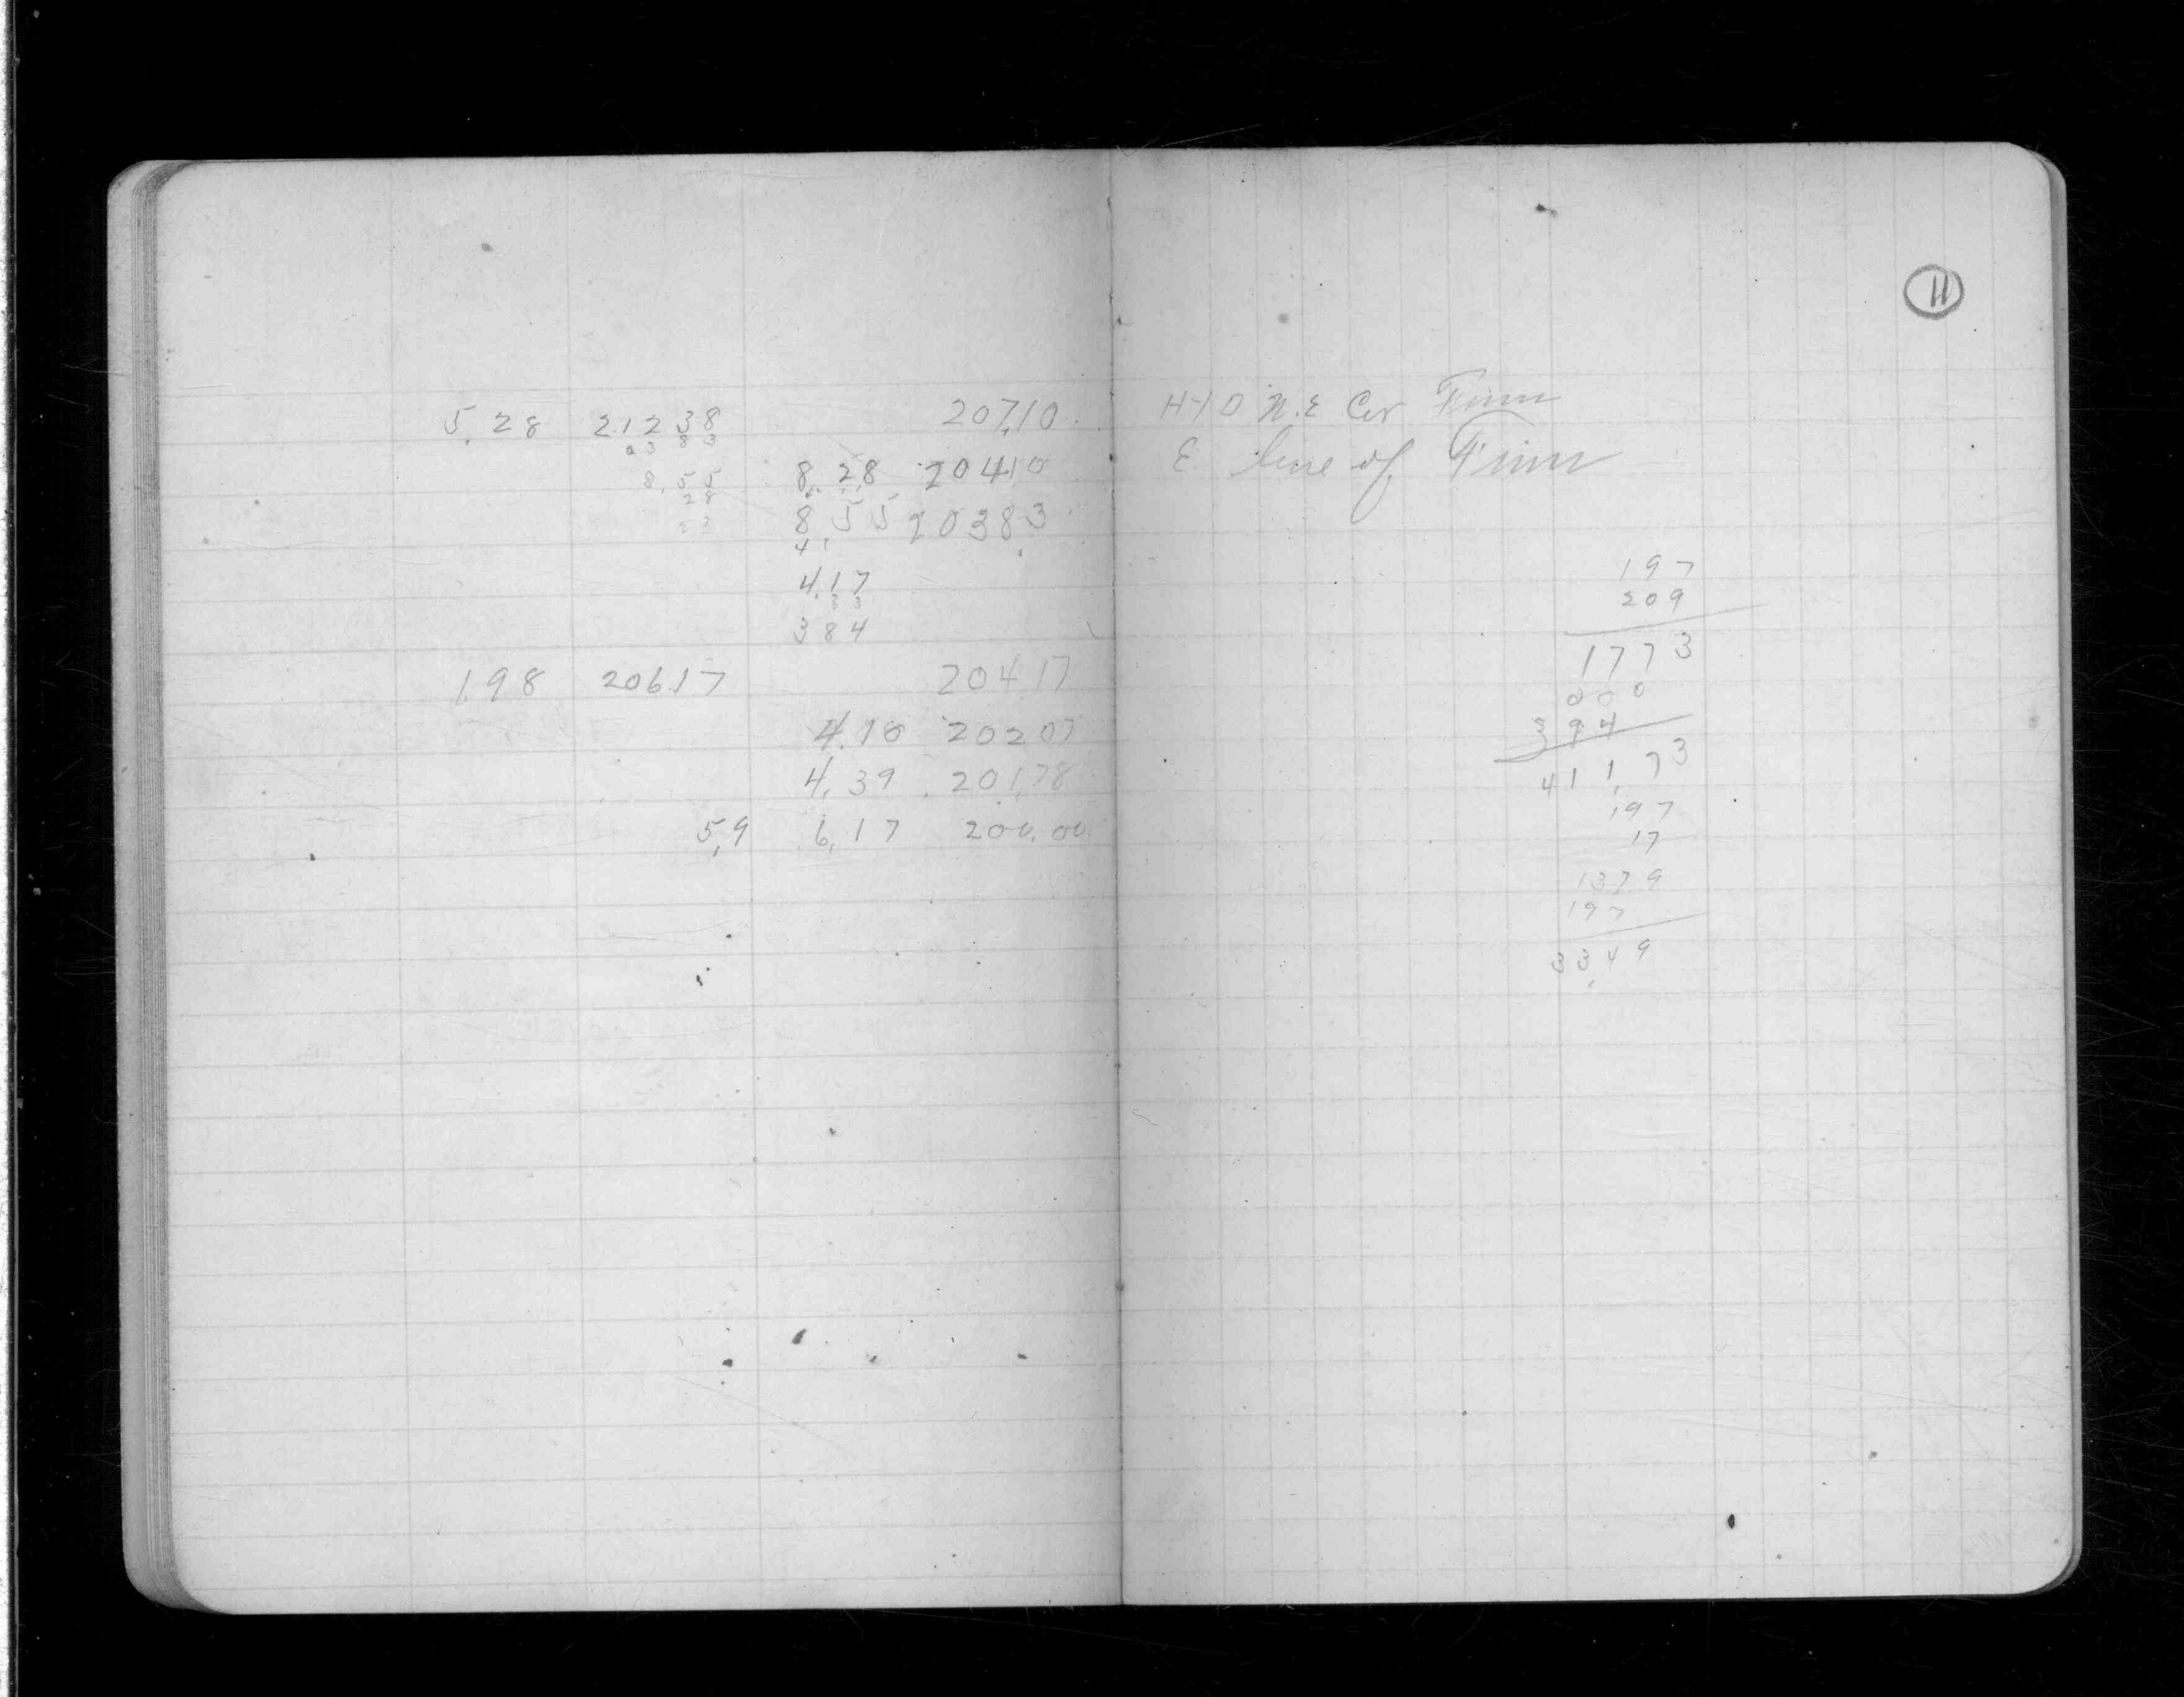 11
5.28 212 38 207.10 H-10 N.E Cor Finn
0 3 8 3
8.28 204 10 E line of Finn
8.55
28
8.55 203 83
2 3
4
4.17
3 3
384
1.98 206.17 204.17
4.10 202 07
4.39 201.78
5.9 6.17 200.00
197
209
1773
000
394
411.73
197
17
1379
197
3349